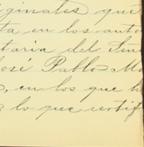 iginales que
ta en los auto
taria del
José Pablo M
o, en los que h
a lo que certif